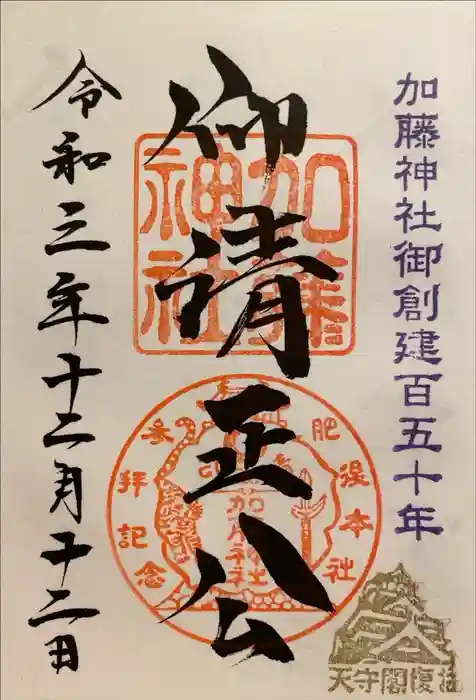 加藤神社御創建百五十年
仰清正公
令和三年十二月十二日
加藤
神社
肥後本社
参拝記念
加藤神社
天守閣